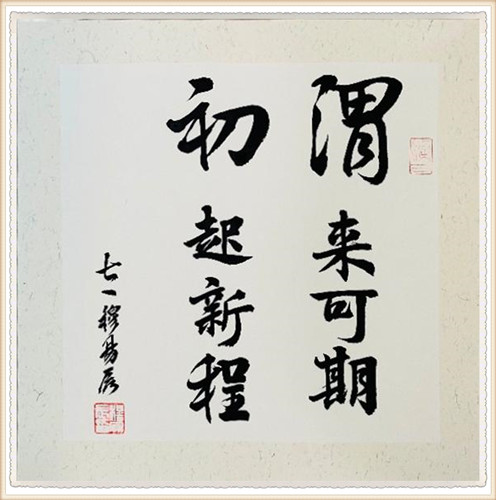 渭来可期
初起新程
七一穆易辰